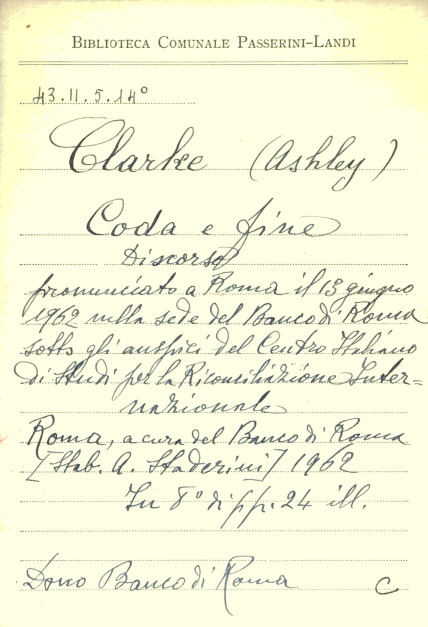 BIBLIOTECA COMUNALE PASSERINI-LANDI
43.II.5.14°
Clarke (Ashley)
Coda e fine
Discorso
pronunciato a Roma il 13 giugno
1962 nella sede del Banco di Roma
sotto gli auspici del Centro Italiano
di Studi per la Riconciliazione Inter=
nazionale
Roma, a cura del Banco di Roma
[Stab. A. Staderini] 1962
In 8° di pp. 24 ill.
Dono Banco di Roma C